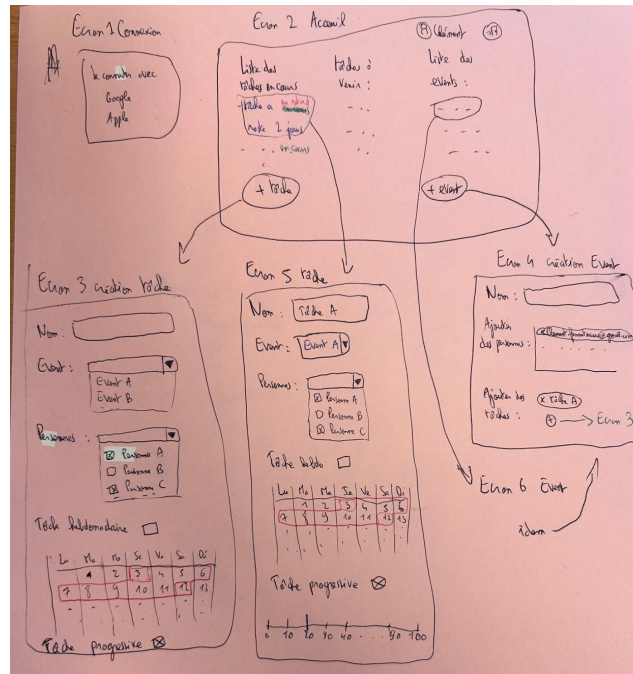 Ecran 1 Connexion
Se connecter avec
Google
Apple
Ecran 2 Accueil
Clément
Liste des
tâches en cours
tâche A en retard
reste 2 jours
en cours
+ tâche
tâches à
venir :
Liste des
events :
+ event
Ecran 3 création tâche
Nom :
Event :
Event A
Event B
Personnes :
Personne A
Personne B
Personne C
Tâche hebdomadaire
Lu Ma Me Je Ve Sa Di
1 2 3 4 5 6
7 8 9 10 11 12 13
Tâche progressive
Ecran 5 tâche
Nom : Tâche A
Event : Event A
Personnes :
Personne A
Personne B
Personne C
Tâche hebdo
Lu Ma Me Je Ve Sa Di
1 2 3 4 5 6
7 8 9 10 11 12 13
Tâche progressive
0 10 20 30 40 . . . 90 100
Ecran 4 création Event
Nom :
Ajouter
des personnes :
Ajouter des
tâches :
x tâche A
+ → Ecran 3
Ecran 6 Event
idem